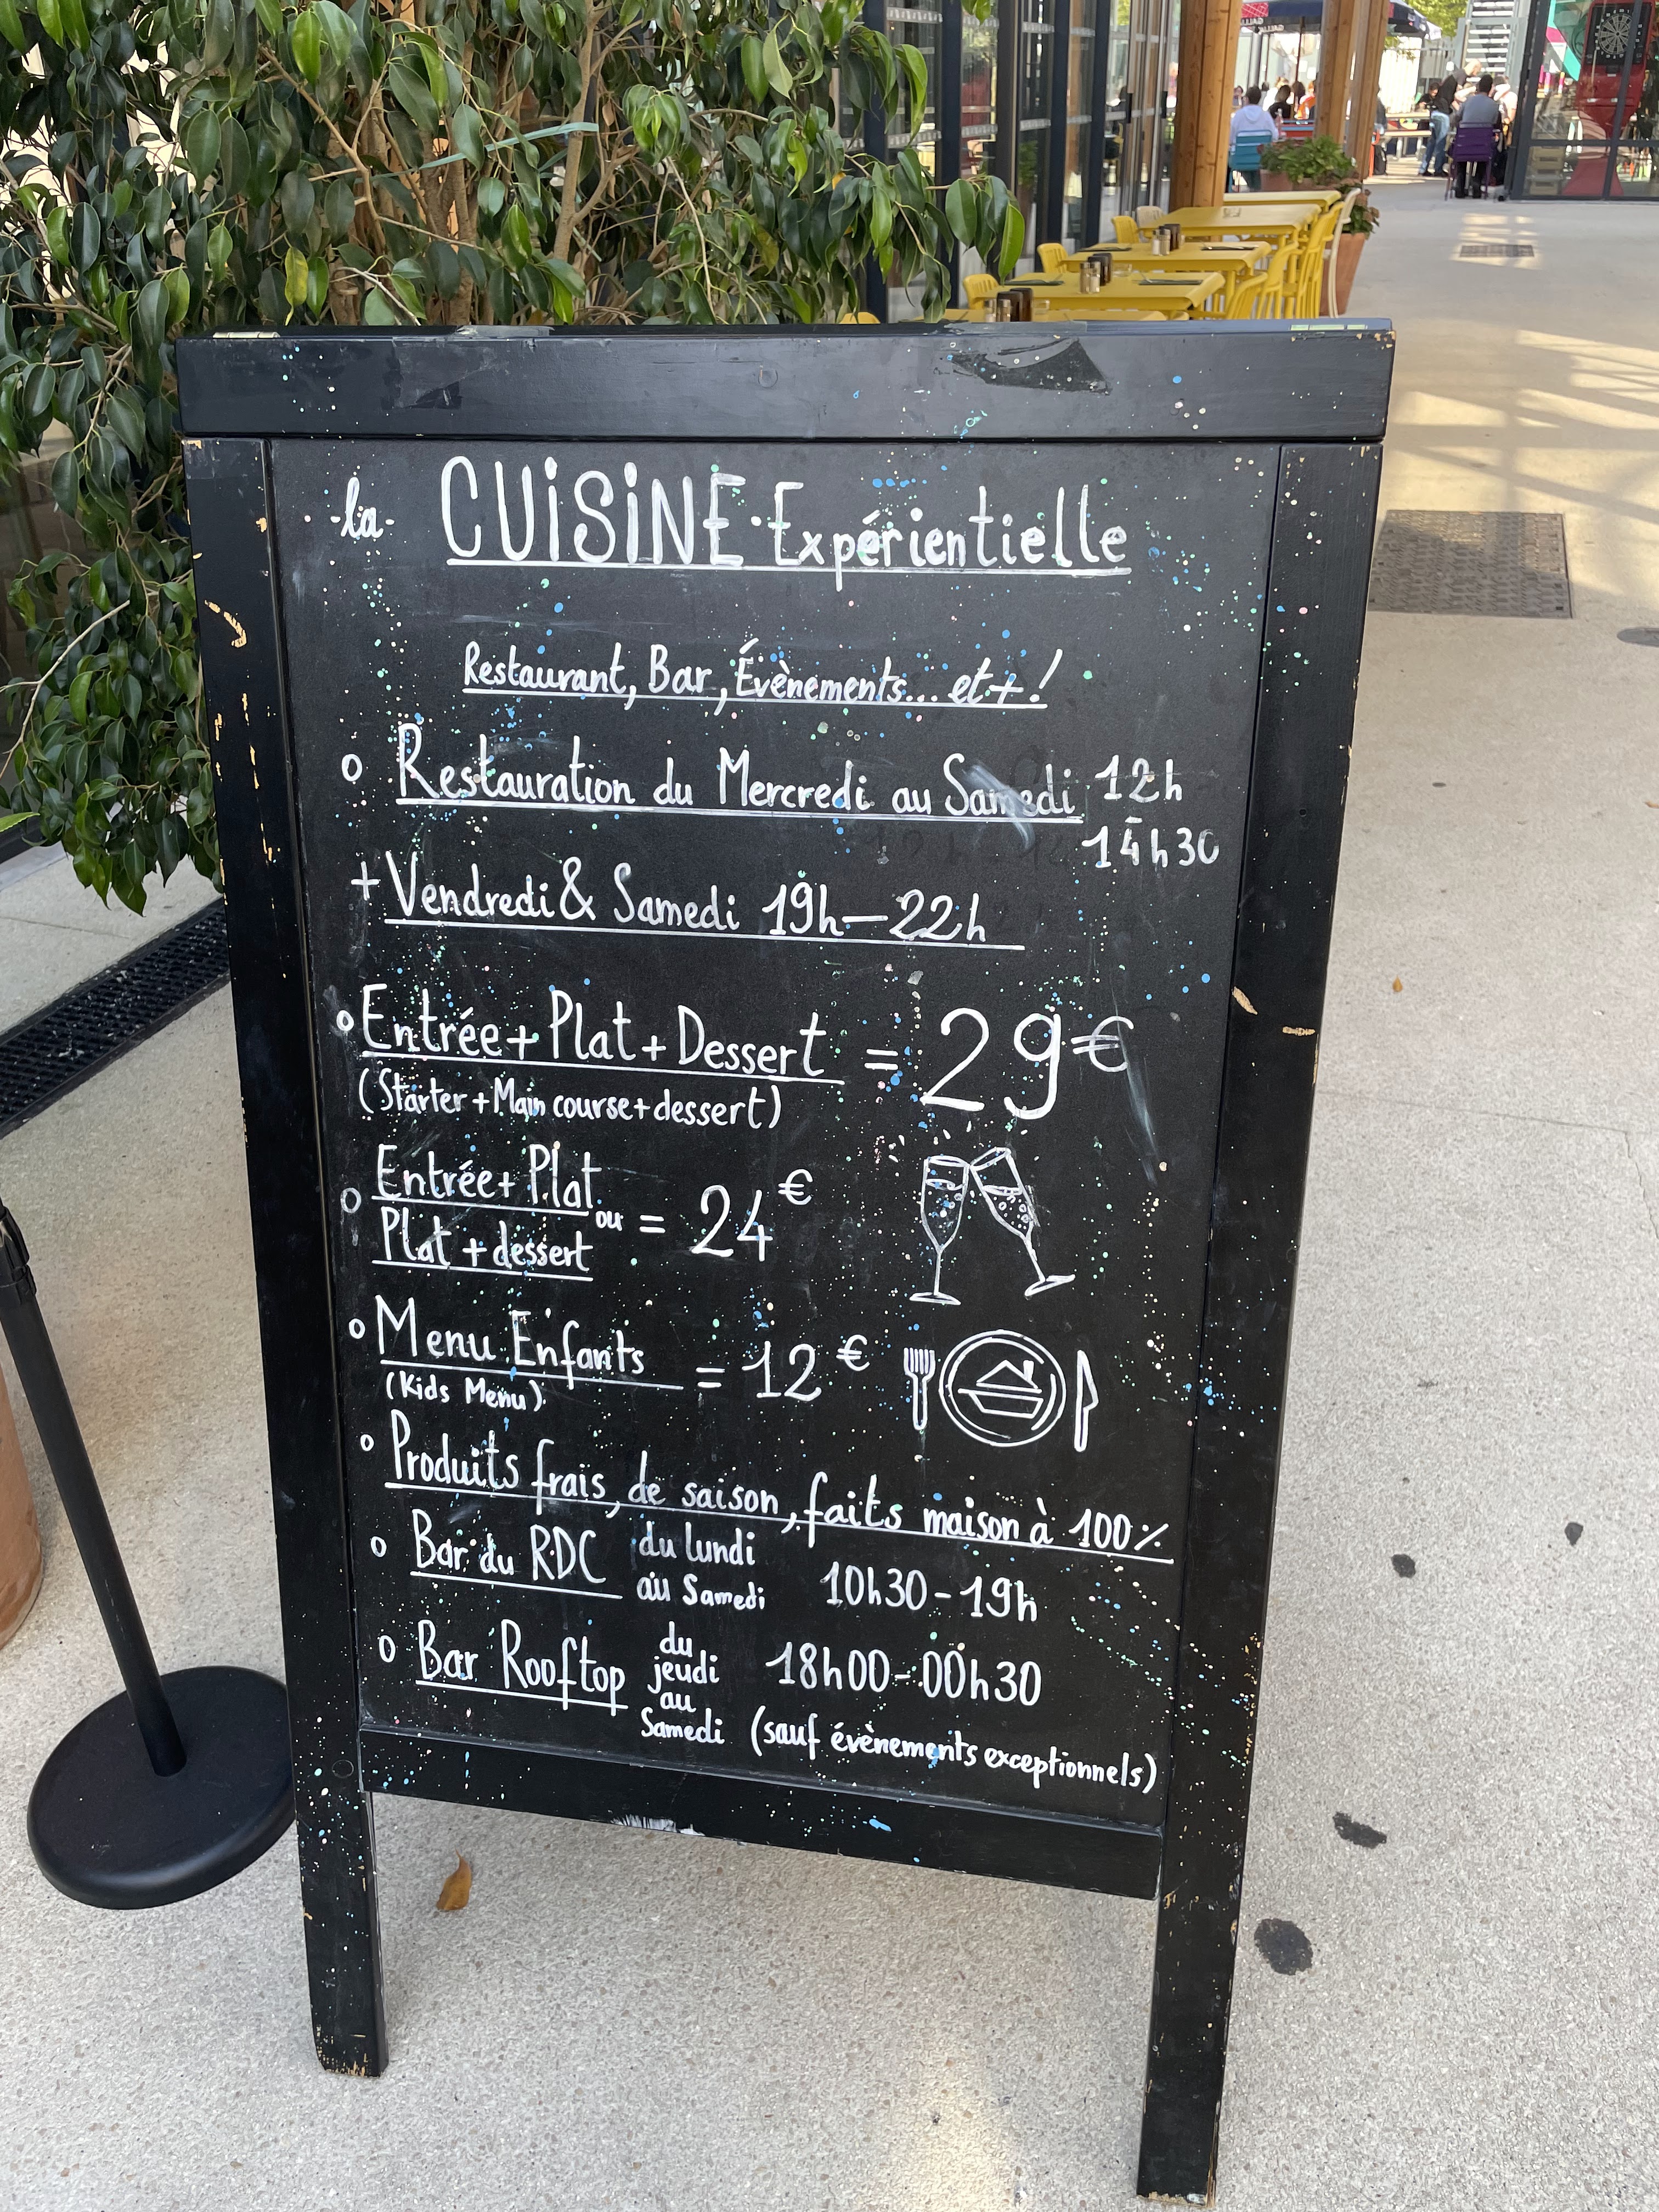 -la- CUiSiNE · Expérientielle
Restaurant, Bar, Évènements... et + !
o Restauration du Mercredi au Samedi 12h
-
14h30
+ Vendredi & Samedi 19h — 22h
o Entrée + Plat + Dessert = 29€
(Starter + Main course + dessert)
o Entrée + Plat
ou = 24€
Plat + dessert
o Menu Enfants = 12€
(Kids Menu)
o Produits frais, de saison, faits maison à 100%
o Bar du RDC du lundi
au Samedi 10h30 - 19h
o Bar Rooftop du
jeudi 18h00 - 00h30
au
Samedi (sauf évènements exceptionnels)